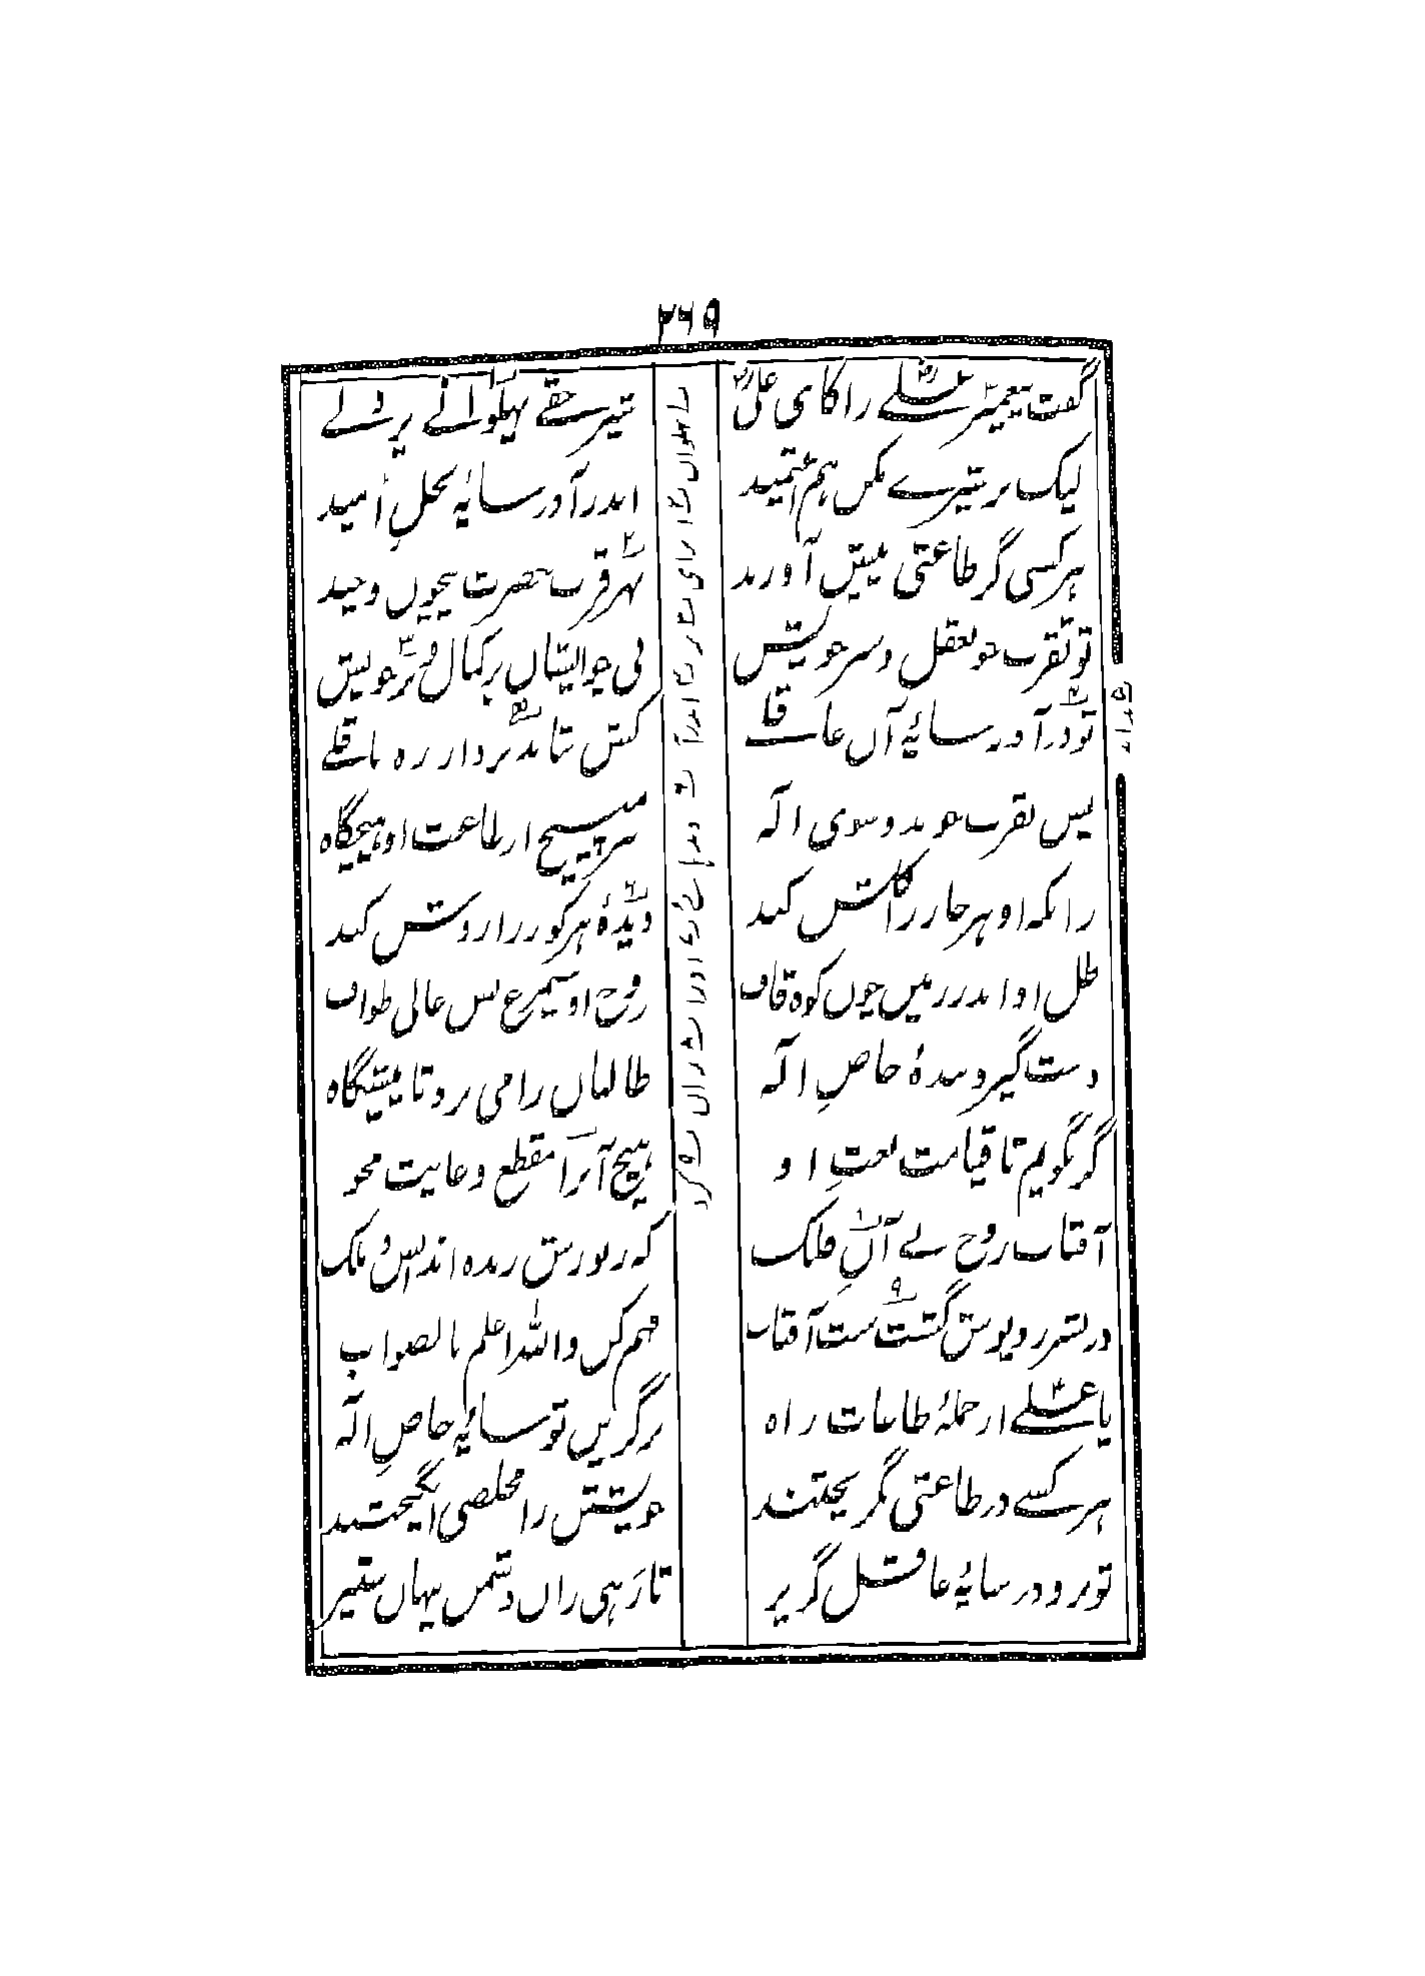 ۲۶۹
گفت پیغمبر علی را کای علی
شیر حقی پہلوانی پر دلی
لیک بر شیری مکن ہم اعتمید
اندر آ در سایۂ نخلِ اُمید
ہر کسی گر طاعتی پیش آورند
بہر قرب حضرت بیچوں و چند
تو تقرب جو بعقل و سر خویش
نی چو ایشاں بر کمال و برِّ خویش
تو در آ در سایۂ آں عاقلی
کش نتاند برد از رہ ناقلی
پس تقرب جو بدو سوی الٰہ
سر مپیچ از طاعت او ہیچگاہ
زانکہ او ہر خار را گلشن کند
دیدۂ ہر کور را روشن کند
ظل او اندر زمیں چوں کوہ قاف
روح او سیمرغ بس عالی طواف
دست گیر و بندۂ خاصِ الٰہ
طالباں را می برد تا پیشگاہ
گر بگویم تا قیامت نعتِ او
ہیچ آنرا مقطع و غایت مجو
آفتاب روح نے آنِ فلک
کہ ز نورش زندہ اند انس و ملک
در بشر روپوش گشت ست آفتاب
فہم کن واللہ اعلم بالصواب
یا علی از جملۂ طاعات راہ
برگزیں تو سایۂ خاصِ الٰہ
ہر کسے در طاعتی بگریختند
خویشتن را مخلصی انگیختند
تو برو در سایۂ عاقل گریز
تا رَہی زاں دشمن پنہاں ستیز